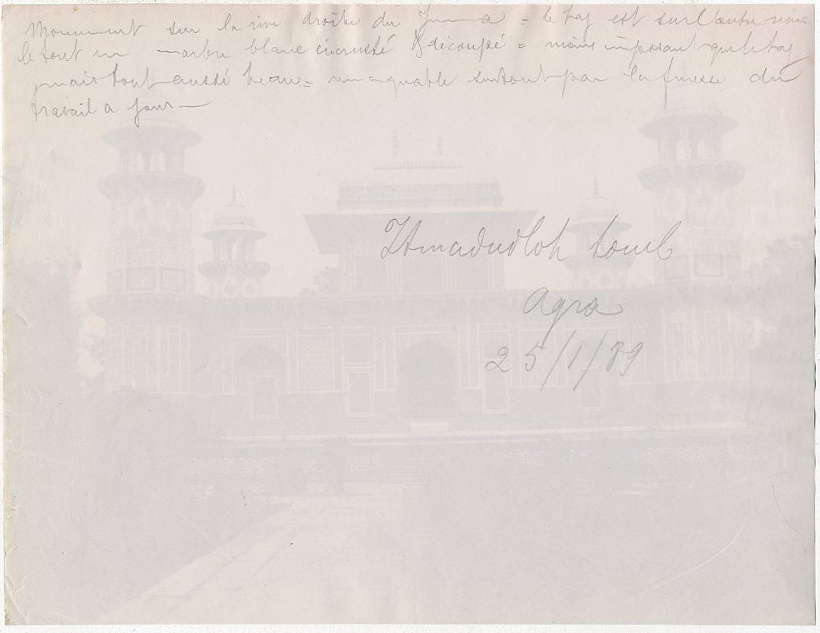 Monument sur la rive droite du Jumna = le taj est sur l'autre rive
le tout en marbre blanc incrusté & découpé = moins imposant que le taj
mais tout aussi beau = remarquable surtout par la finesse du
travail a jour —
Itmadudloh tomb
Agra
25/1/89